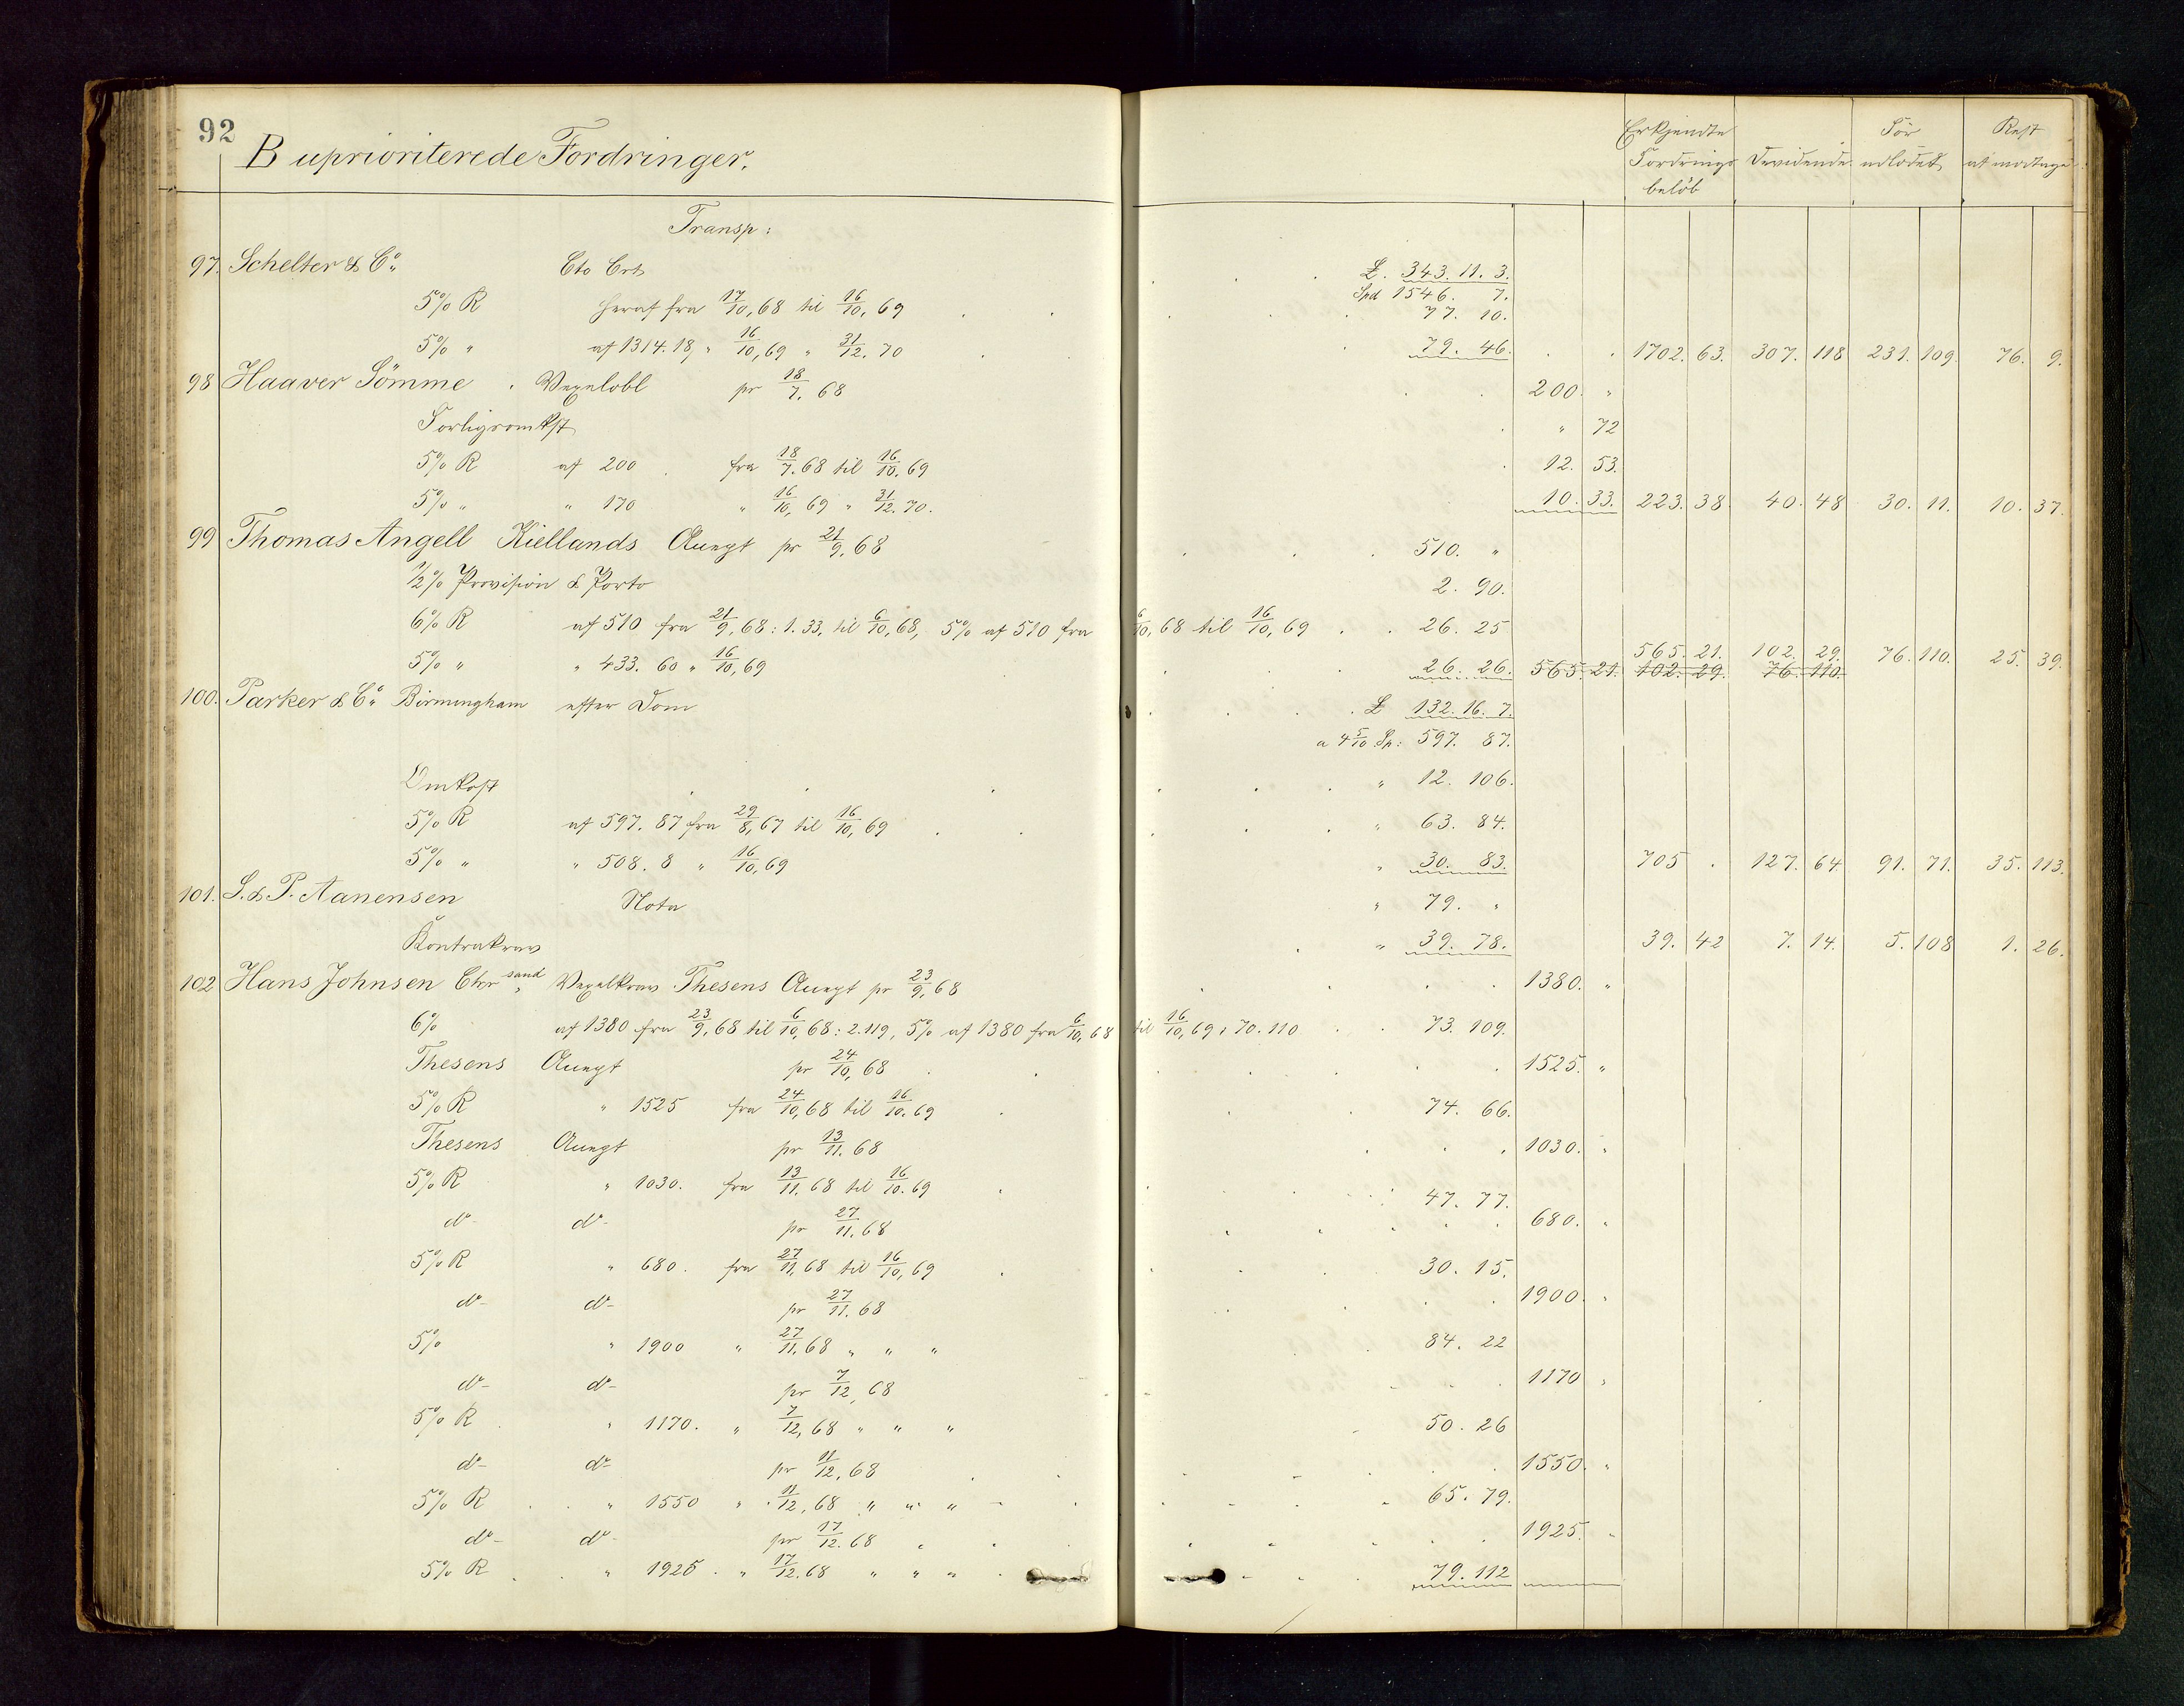 92
B uprioriterede Fordringer.
Erkjendte Fordrings beløb Devidende Før udloddet Rest at modtage
Transp:
97. Schelter & Co. Cto Crt £. 343. 11. 3.
Spd 1546. 7.
5% R heraf fra 17/10, 68 til 16/10, 69 77. 10.
5% " af 1314. 18, " 16/10, 69 " 31/12. 70 79. 46. 1702. 63. 307. 118 231. 109. 76. 9.
98 Haaver Sömme Vexelobl pr 18/7. 68 200 "
Forligsomkst " 72
5% R af 200 fra 18/7. 68 til 16/10. 69 12. 53.
5% " " 170 " 16/10, 69 " 31/12. 70. 10. 33. 223. 38. 40. 48 30. 11. 10. 37.
99 Thomas Angell Kiellands Accept pr 21/9, 68 510. "
1/2% Provision & Porto 2. 90.
6% R af 510 fra 21/9, 68: 1. 33, til 6/10, 68, 5% af 510 fra 6/10, 68 til 16/10, 69 26. 25
565. 21. 102. 29. 76. 110. 25. 39.
5% " " 433. 60 " 16/10, 69 26. 26. 565. 21. 102. 29. 76. 110.
100. Parker & Co. Birmingham efter Dom £ 132. 16. 7.
a 4 5/10 Sp: 597. 87.
Omkost " 12. 106.
5% R af 597. 87 fra 29/8, 67 til 16/10, 69 " 63. 84.
5% " " 508. 8 " 16/10, 69 " 30. 83. 705 . 127. 64. 91. 71. 35. 113.
101. S. & P. Aanensen Nota " 79. "
Kontrakrav " 39. 78. 39. 42 7. 14. 5. 108 1. 26.
102 Hans Johnsen Chr.sand Vexelkrav Thesens Accept pr 23/9, 68 1380. "
6% af 1380 fra 23/9, 68 til 6/10, 68: 2. 119, 5% af 1380 fra 6/10, 68 til 16/10, 69: 70. 110 73. 109.
Thesens Accept pr 24/10, 68 1525. "
5% R " 1525 fra 24/10, 68 til 16/10. 69 74. 66.
Thesens Accept pr 13/11. 68 1030. "
5% R " 1030. fra 13/11. 68 til 16/10. 69 47. 77.
do- do- pr 27/11. 68 680. "
5% R " 680. fra 27/11. 68 til 16/10, 69 30. 15.
do- do- pr 27/11. 68 1900. "
5% " 1900 " 27/11. 68 " " " 84. 22
do- do- pr 7/12, 68 1170 "
5% R " 1170. " 7/12, 68 " " " 50. 26
do- do- pr 11/12, 68 1550. "
5% R " 1550 " 11/12, 68 " " " 65. 79.
do- do- pr 17/12. 68 1925. "
5% R " 1925. " 17/12. 68 " " " 79. 112